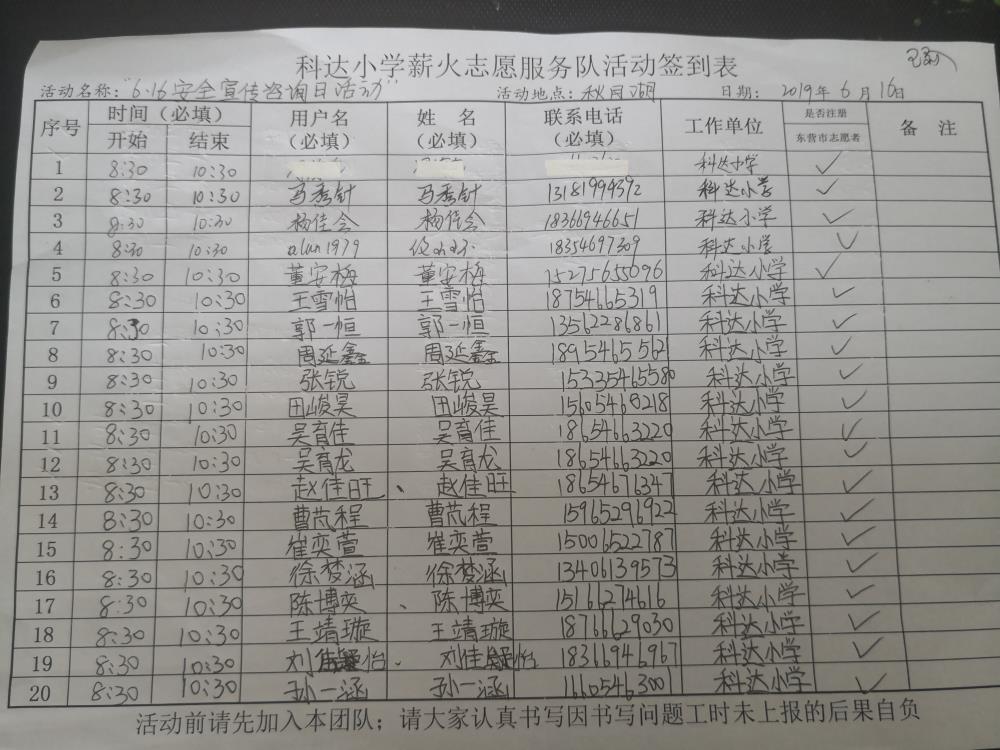 科达小学薪火志愿服务队活动签到表
活动名称：“6·16安全宣传咨询日活动” 活动地点：秋园湖 日期：2019年6月16日
序号 时间（必填） 用户名（必填） 姓 名（必填） 联系电话（必填） 工作单位 是否注册东营市志愿者 备 注
开始 结束
1 8:30 10:30 科达小学 ✓
2 8:30 10:30 马秀针 马秀针 13181994392 科达小学 ✓
3 8:30 10:30 杨佳会 杨佳会 18366946651 科达小学 ✓
4 8:30 10:30 alan1979 18354697309 科达小学 ✓
5 8:30 10:30 董安梅 董安梅 15275655096 科达小学 ✓
6 8:30 10:30 王雪怡 王雪怡 18754665319 科达小学 ✓
7 8:30 10:30 郭一恒 郭一恒 13562286861 科达小学 ✓
8 8:30 10:30 周延鑫 周延鑫 科达小学 ✓
9 8:30 10:30 张锐 张锐 15335465580 科达小学 ✓
10 8:30 10:30 田峻昊 田峻昊 15605468218 科达小学 ✓
11 8:30 10:30 吴育佳 吴育佳 18654663220 科达小学 ✓
12 8:30 10:30 吴育龙 吴育龙 18654663220 科达小学 ✓
13 8:30 10:30 赵佳旺、 赵佳旺 18654676347 科达小学 ✓
14 8:30 10:30 曹芃程 曹芃程 15965296922 科达小学 ✓
15 8:30 10:30 崔奕萱 崔奕萱 15006522787 科达小学 ✓
16 8:30 10:30 徐梦涵 徐梦涵 13406139573 科达小学 ✓
17 8:30 10:30 陈博奕、 陈博奕 15166274616 科达小学 ✓
18 8:30 10:30 王靖璇 王靖璇 18766629030 科达小学 ✓
19 8:30 10:30 刘佳怡、 刘佳怡 18366946967 科达小学 ✓
20 8:30 10:30 孙一涵 孙一涵 1660546300 科达小学 ✓
活动前请先加入本团队；请大家认真书写因书写问题工时未上报的后果自负